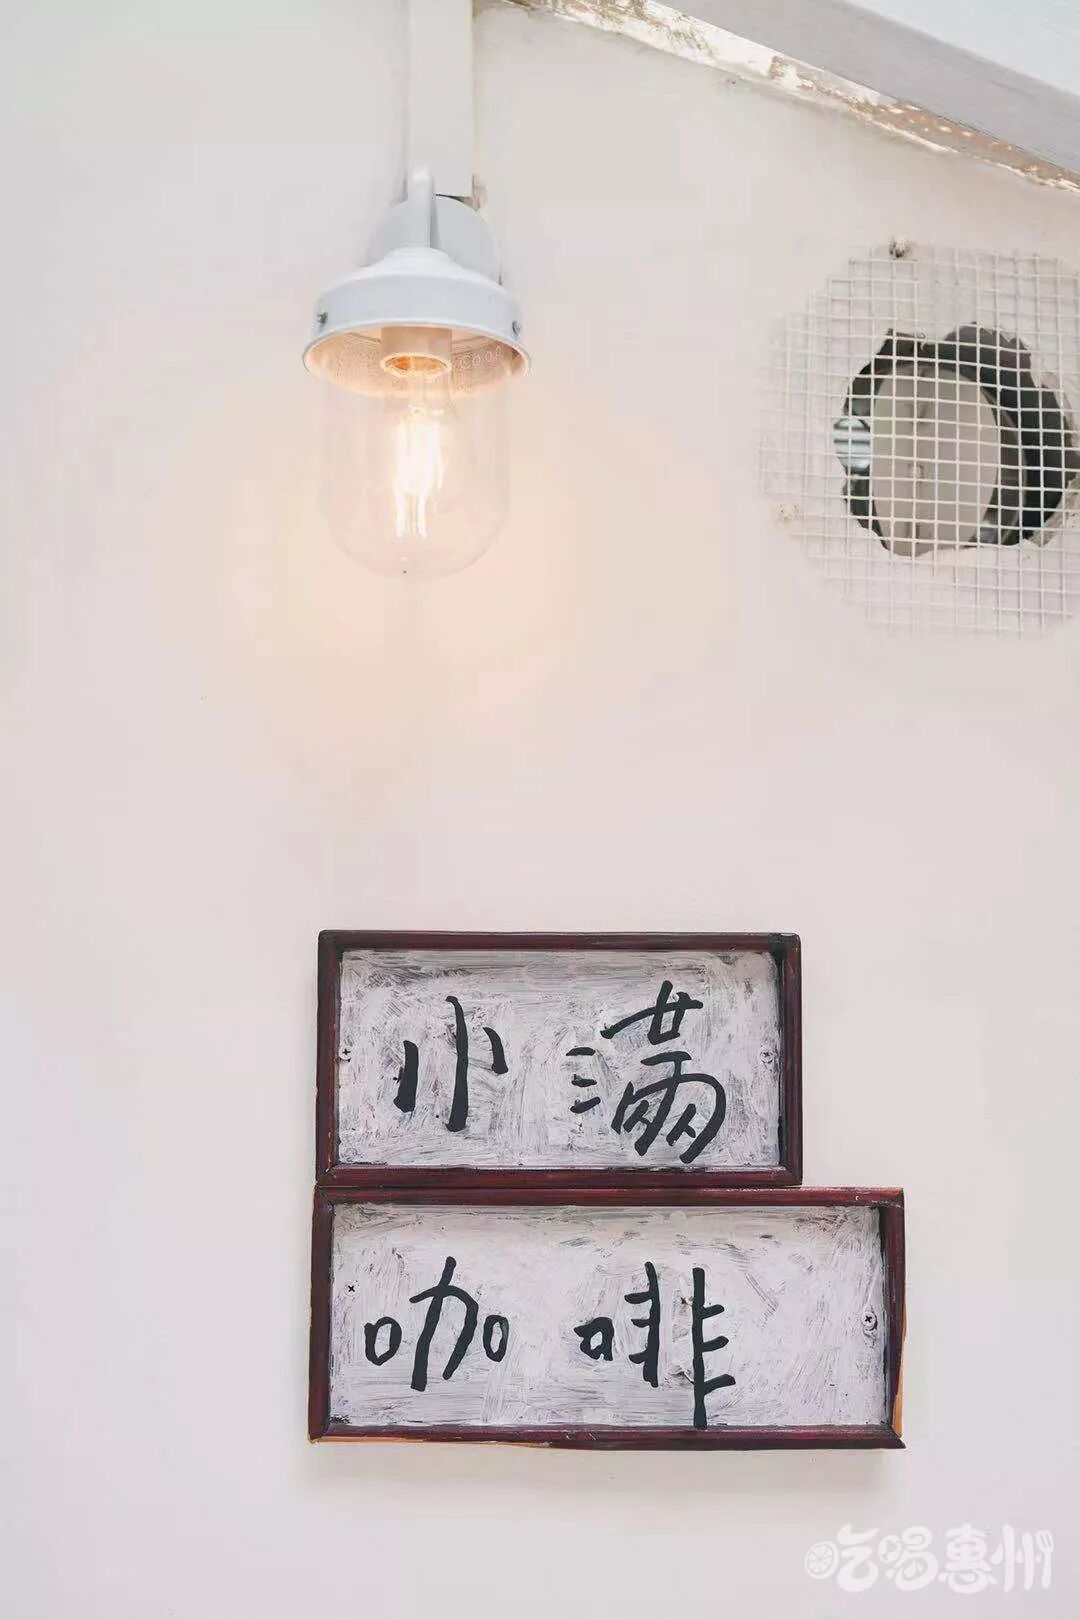 小满
咖啡
吃喝惠州